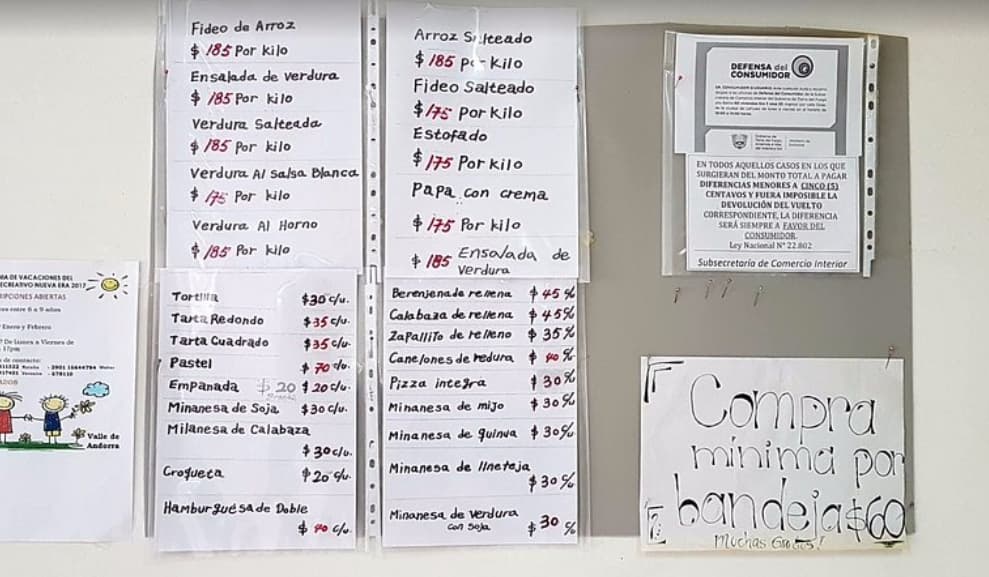 Fideo de Arroz
$ 185 Por kilo
Ensalada de verdura
$ 185 Por kilo
Verdura Salteada
$ 185 Por kilo
Verdura Al Salsa Blanca
$ 175 Por kilo
Verdura Al Horno
$ 185 Por kilo
Arroz Salteado
$ 185 Por kilo
Fideo Salteado
$ 175 Por kilo
Estofado
$ 175 Por kilo
Papa con crema
$ 175 Por kilo
$ 185 Ensalada de
Verdura
Tortilla $30 c/u.
Tarta Redondo $35 c/u.
Tarta Cuadrado $35 c/u.
Pastel $ 70 c/u.
Empanada $ 20 $ 20 c/u.
Minanesa de Soja $30 c/u.
Milanesa de Calabaza
$ 30 c/u.
Croqueta $ 20 c/u.
Hamburguesa de Doble
$ 40 c/u.
Berenjena de rellena $ 45 %
Calabaza de rellena $ 45%
Zapallito de relleno $ 35%
Canelones de redura $ 40 %
Pizza integra $ 30%
Minanesa de mijo $ 30%
Minanesa de quinua $ 30%
Minanesa de lineteja
$ 30%
Minanesa de verdura
con soja $ 30 %
DEFENSA del
CONSUMIDOR
EN TODOS AQUELLOS CASOS EN LOS QUE
SURGIERAN DEL MONTO TOTAL A PAGAR
DIFERENCIAS MENORES A CINCO (5)
CENTAVOS Y FUERA IMPOSIBLE LA
DEVOLUCIÓN DEL VUELTO
CORRESPONDIENTE, LA DIFERENCIA
SERÁ SIEMPRE A FAVOR DEL
CONSUMIDOR
Ley Nacional N° 22.802
Subsecretaría de Comercio Interior
Compra
mínima por
bandeja $60
Muchas Gracias!
IA DE VACACIONES DEL
RECREATIVO NUEVA ERA 2017
RIPCIONES ABIERTAS
entre 6 a 9 años
Enero y Febrero
de Lunes a Viernes de
17pm
de contacto:
Valle de
Andorra